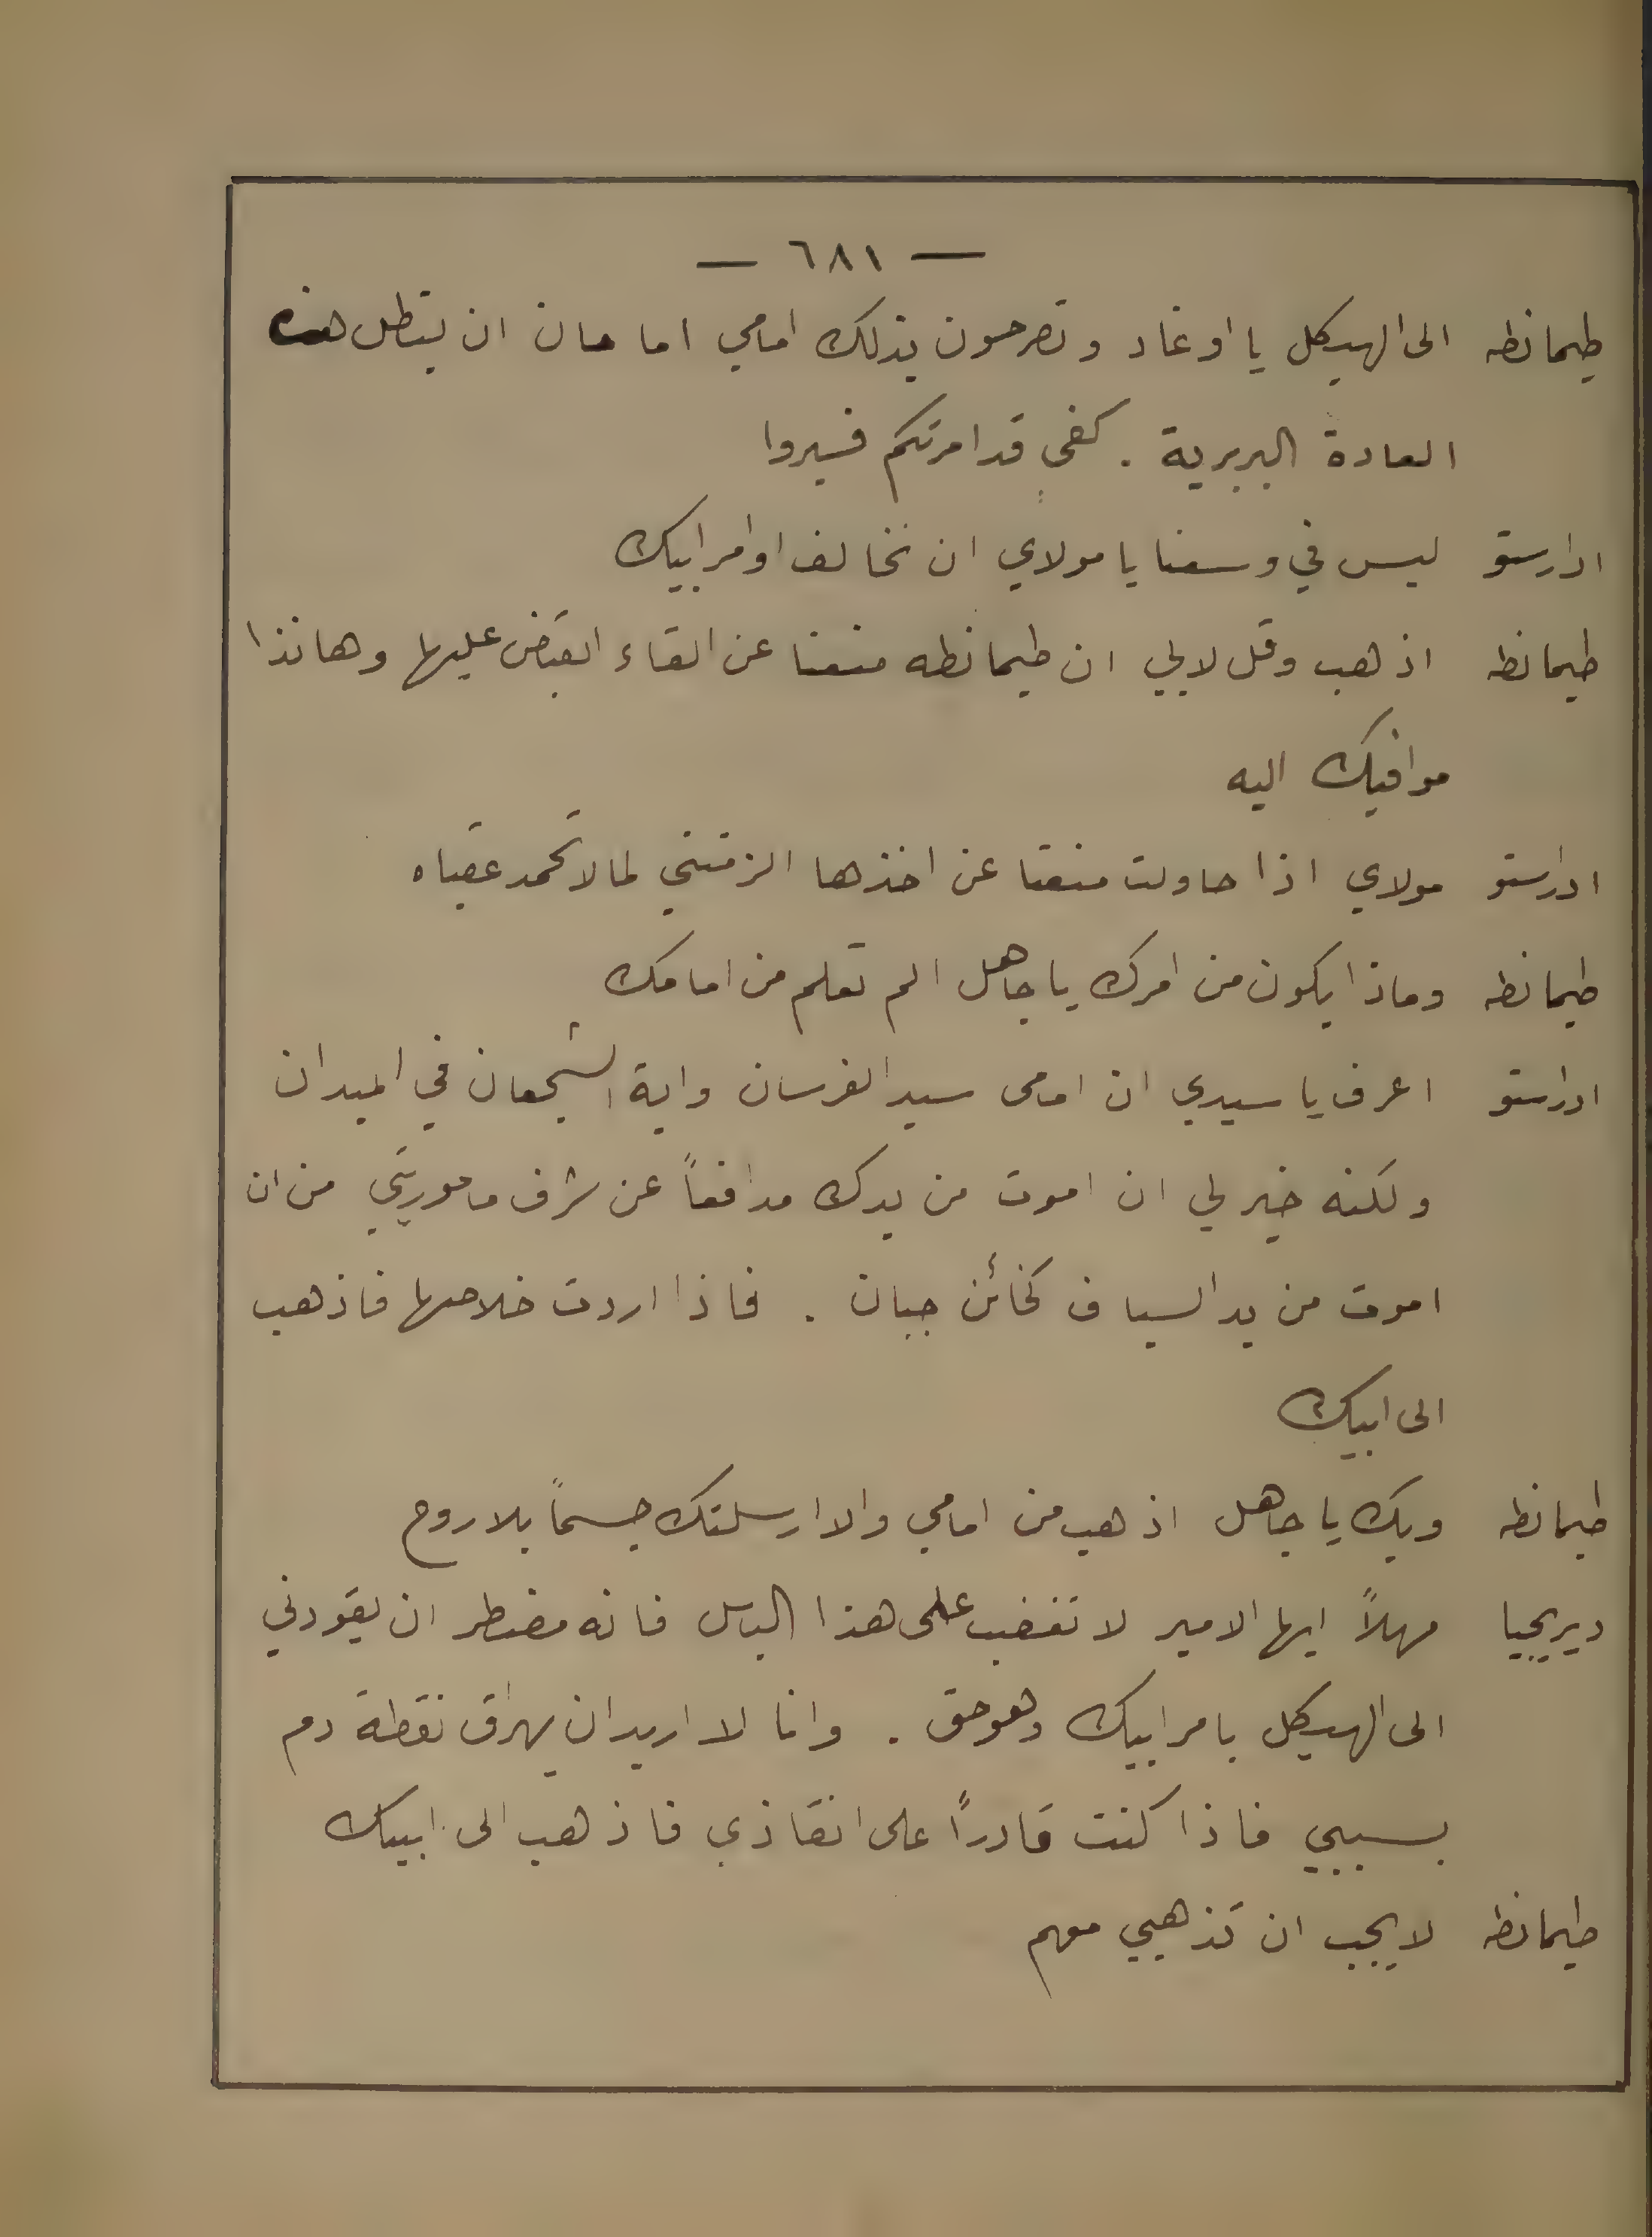 — ٦٨١ —
طيمانطه الى الهيكل يا اوغاد وتصرحون بذلك امامي اما حان ان تبطل هذه
العادة البربرية . كفى قد امرتكم فسيروا
ادارستو ليس في وسعنا يا مولاي ان نخالف اوامر ابيك
طيمانطه اذهب وقل لابي ان طيمانطه منعنا عن القاء القبض عليها وهانذا
موافيك اليه
ادراستو مولاي اذا حاولت منعنا عن اخذها الزمتني لما لا تحمد عقباه
طيمانطه وماذا يكون من امرك يا جاهل الم تعلم من امامك
ادراستو اعرف يا سيدي ان امامي سيد الفرسان واية الشجعان في الميدان
ولكنه خير لي ان اموت من يدك مدافعاً عن شرف ماموريتي من ان
اموت من يد السياف كخائن جبان . فاذا اردت خلاصها فاذهب
الى ابيك
طيمانطه ويك يا جاهل اذهب من امامي والا ارسلتك جسماً بلا روح
ديريجيا مهلاً ايها الامير لا تغضب على هذا الباسل فانه مضطر ان يقودني
الى الهيكل بامر ابيك وهو محق . وانا لا اريد ان يهراق نقطة دم
بسببي فاذا كنت قادراً على انقاذي فاذهب الى ابيك
طيمانطه لا يجب ان تذهبي معهم